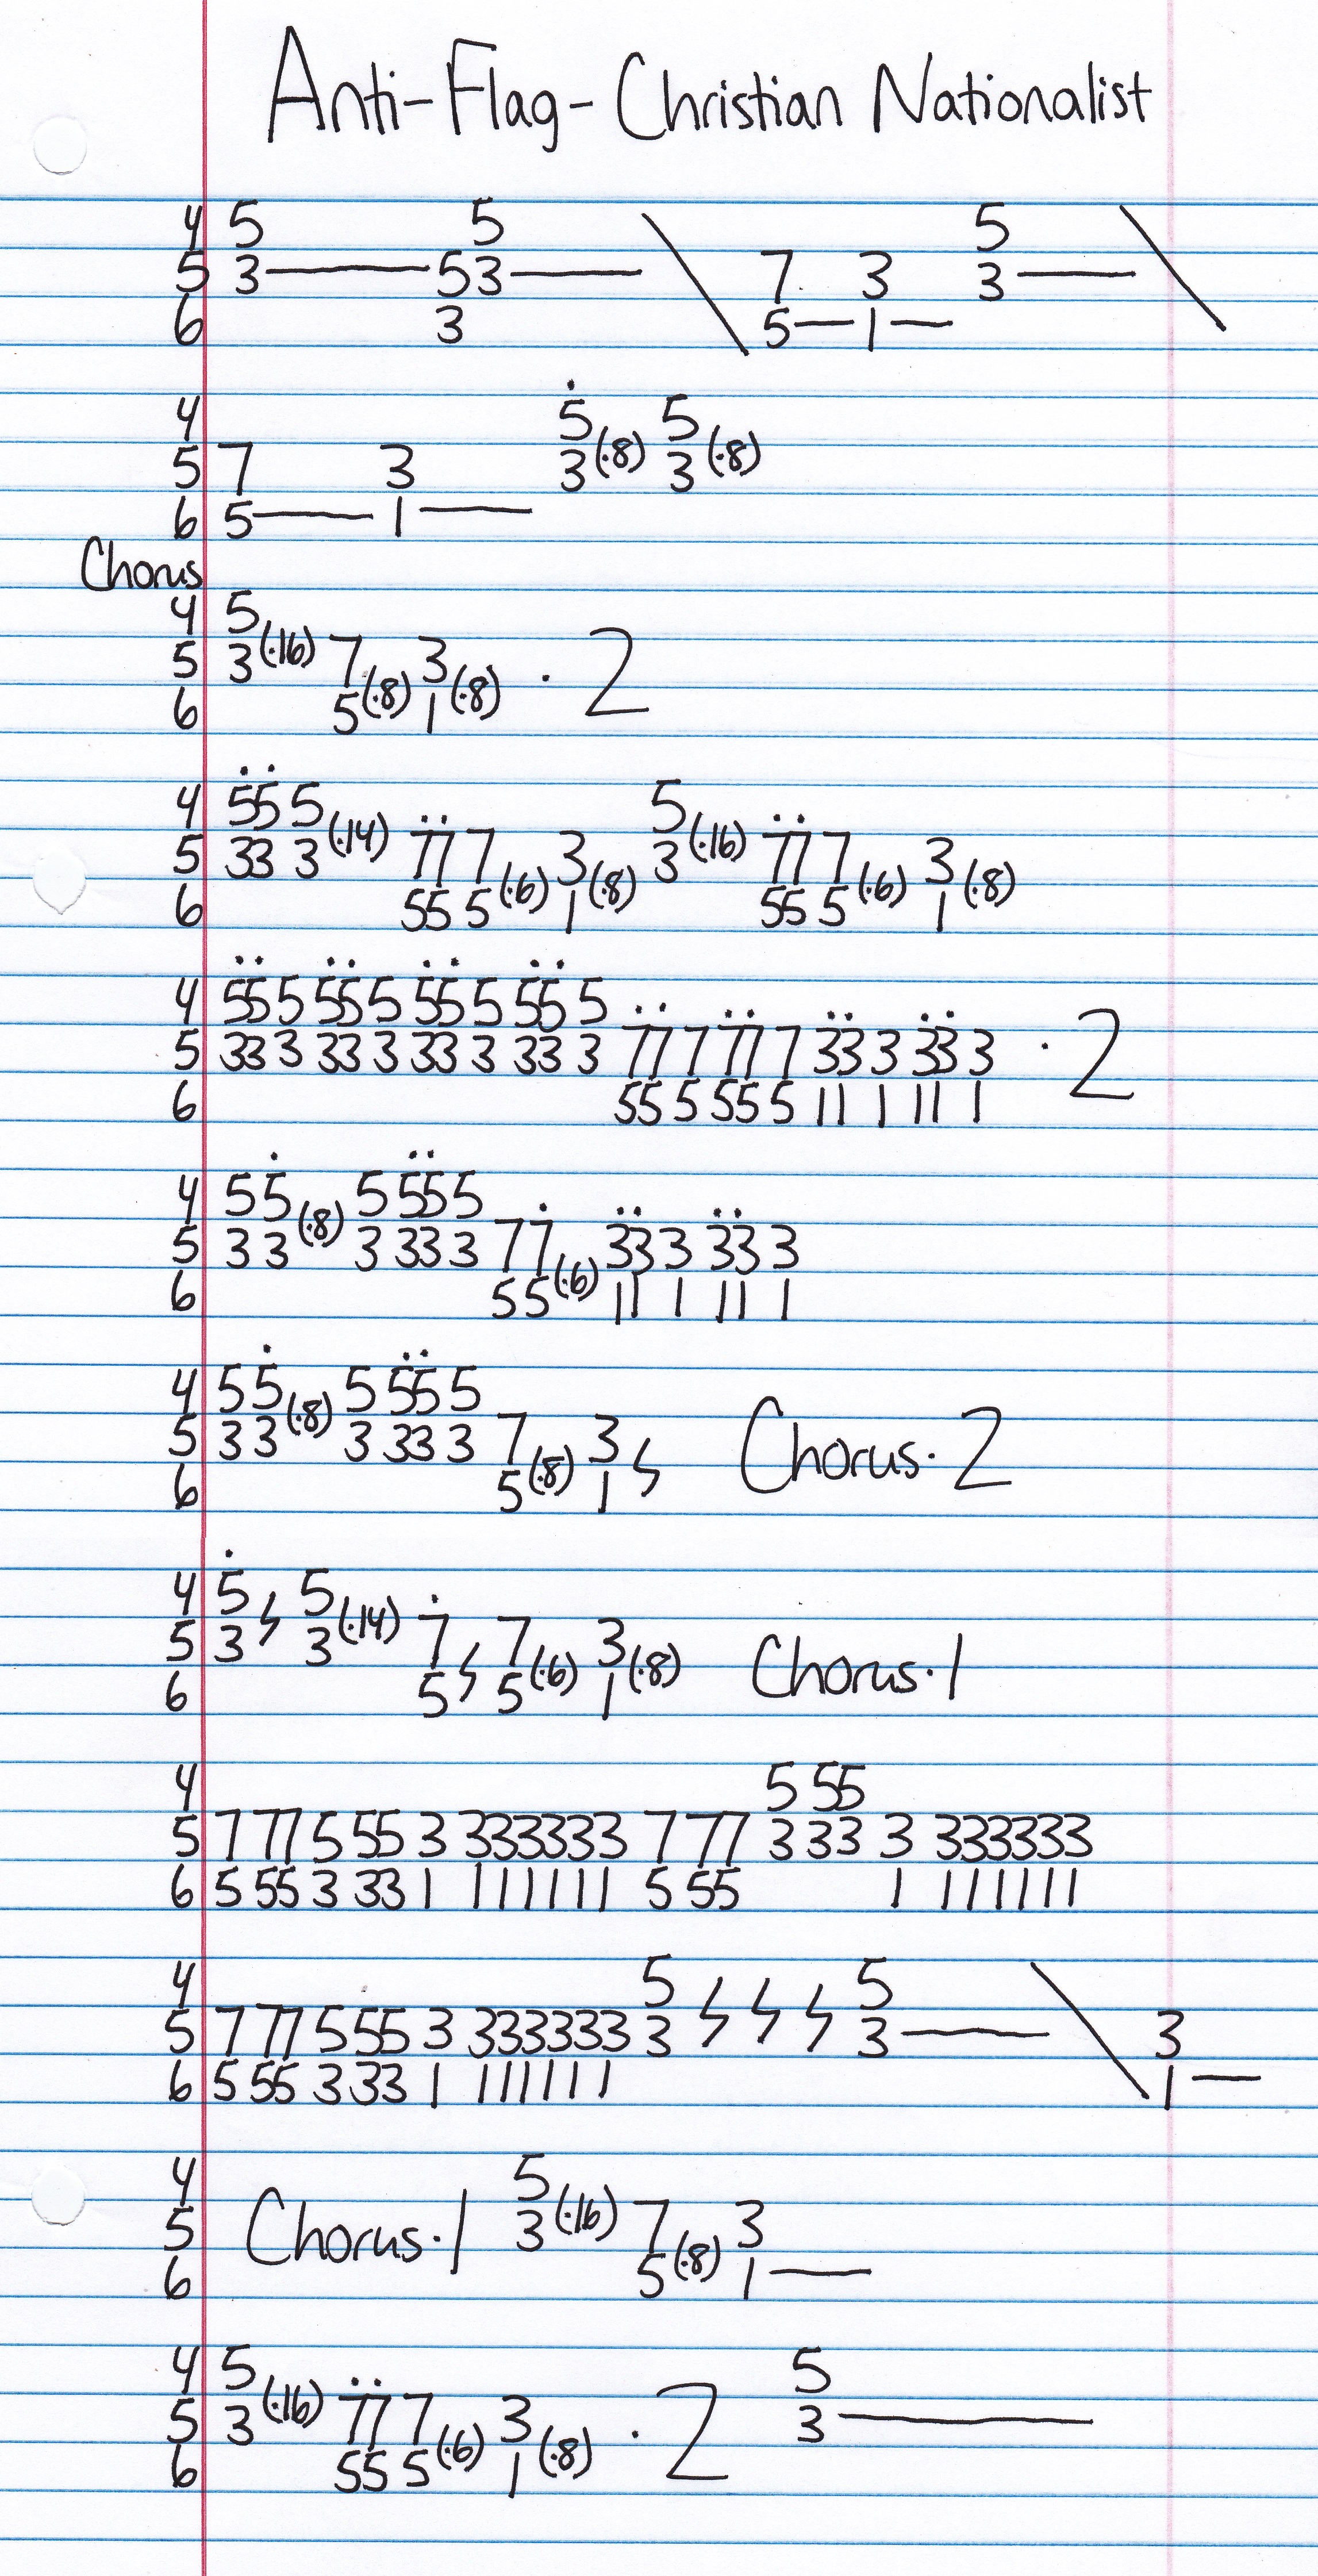 Anti-Flag - Christian Nationalist
4 5 5 5
5 3 — 53 — \ 7 3 3 — \
6 3 5 — 1 —
4 5 5
5 7 3 3 (·8) 3 (·8)
6 5 — 1 —
Chorus
4 5
5 3 (·16) 7 3 · 2
6 5 (·8) 1 (·8)
4 55 5 5
5 33 3 (·14) 77 7 3 3 (·16) 77 7 3
6 55 5 (·6) 1 (·8) 55 5 (·6) 1 (·8)
4 55 5 55 5 55 5 55 5
5 33 3 33 3 33 3 33 3 77 7 77 7 33 3 33 3 · 2
6 55 5 55 5 11 1 11 1
4 5 5 5 55 5
5 3 3 (·8) 3 33 3 7 7 33 3 33 3
6 5 5 (·6) 11 1 11 1
4 5 5 5 55 5
5 3 3 (·8) 3 33 3 7 3 Chorus · 2
6 5 (·8) 1
4 5 5
5 3 3 (·14) 7 7 3 Chorus · 1
6 5 5 (·6) 1 (·8)
4 5 55
5 7 77 5 55 3 333333 7 77 3 33 3 333333
6 5 55 3 33 1 111111 5 55 1 111111
4 5 5
5 7 77 5 55 3 333333 3 3 — \ 3
6 5 55 3 33 1 111111 1 —
4 5
5 Chorus · 1 3 (·16) 7 3
6 5 (·8) 1 —
4 5 5
5 3 (·16) 77 7 3 · 2 3 —
6 55 5 (·6) 1 (·8)